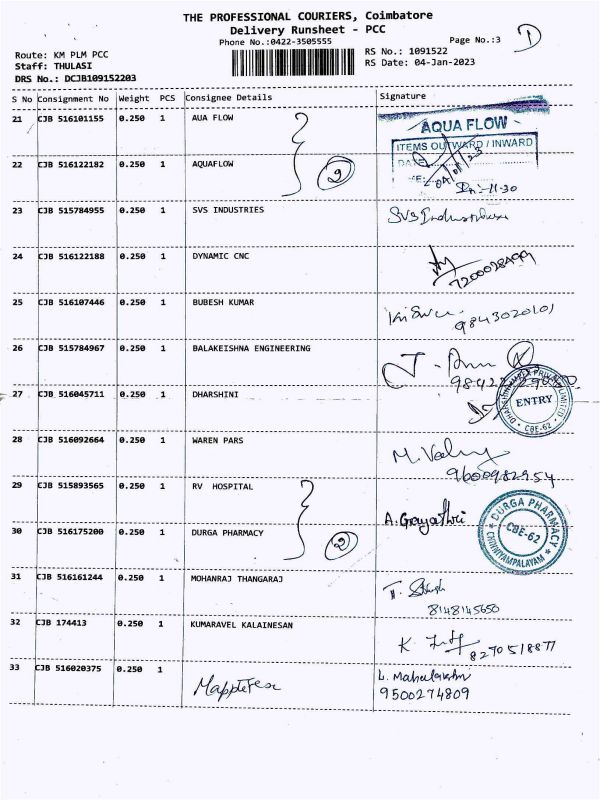 THE PROFESSIONAL COURIERS, Coimbatore
Delivery Runsheet - PCC
Phone No.:0422-3505555
Page No.:3 1
Route: KM PLM PCC
RS No.: 1091522
Staff: THULASI
RS Date: 04-Jan-2023
DRS No.: DCJB109152203
S No Consignment No Weight PCS Consignee Details Signature
21 CJB 516101155 0.250 1 AUA FLOW
AQUA FLOW
ITEMS OUTWARD / INWARD
DATE
22 CJB 516122182 0.250 1 AQUAFLOW 2
11-30
23 CJB 515784955 0.250 1 SVS INDUSTRIES
SVS Industries
24 CJB 516122188 0.250 1 DYNAMIC CNC
7200028499
25 CJB 516107446 0.250 1 BUBESH KUMAR
9843020101
26 CJB 515784967 0.250 1 BALAKEISHNA ENGINEERING
27 CJB 516045711 0.250 1 DHARSHINI
ENTRY
CBE-62
28 CJB 516092664 0.250 1 WAREN PARS
9600982954
29 CJB 515893565 0.250 1 RV HOSPITAL
A. Gayathri
DURGA PHARMACY
CBE-62
CHINNIYAMPALAYAM
30 CJB 516175200 0.250 1 DURGA PHARMACY 2
31 CJB 516161244 0.250 1 MOHANRAJ THANGARAJ
8148145650
32 CJB 174413 0.250 1 KUMARAVEL KALAINESAN
8270518877
33 CJB 516020375 0.250 1
L. Mahalakshmi
9500274809